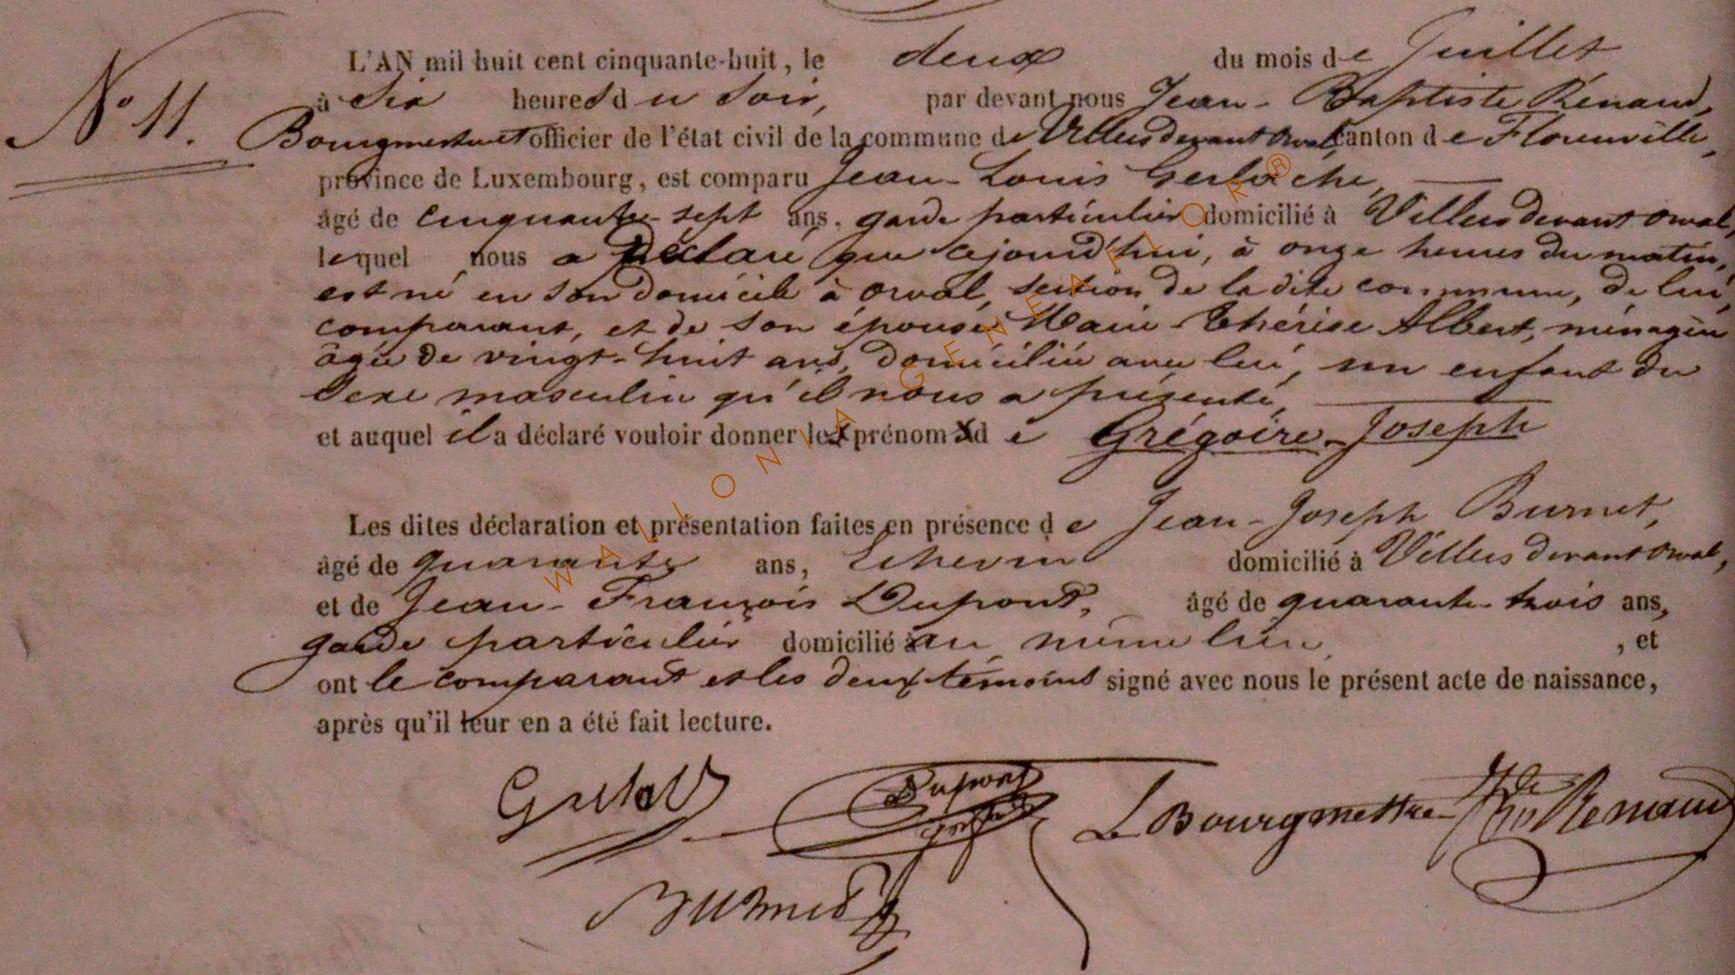 N° 11.
L'AN mil huit cent cinquante-huit, le deux du mois de Juillet
à six heures du soir, par devant nous Jean-Baptiste Rénaud,
Bourgmestre et officier de l'état civil de la commune de Villers devant Orval, canton de Florenville,
province de Luxembourg, est comparu Jean-Louis Gerlache,
âgé de cinquante-sept ans, garde particulier domicilié à Villers devant Orval,
lequel nous a déclaré que cejourd'hui, à onze heures du matin,
est né en son domicile à Orval, section de la dite commune, de lui
comparant, et de son épouse Marie-Thérèse Albert, ménagère
âgée de vingt-huit ans, domiciliée avec lui, un enfant du
sexe masculin qu'il nous a présenté,
et auquel il a déclaré vouloir donner les prénoms de Grégoire-Joseph
Les dites déclaration et présentation faites en présence de Jean-Joseph Burnet,
âgé de quarante ans, Echevin domicilié à Villers devant Orval,
et de Jean-François Dupont, âgé de quarante-trois ans,
garde particulier domicilié au même lieu, et
ont le comparant et les deux témoins signé avec nous le présent acte de naissance,
après qu'il leur en a été fait lecture.
Dupont
Le Bourgmestre Renaud
Burnet
WALLONIA GENEAFLOR®